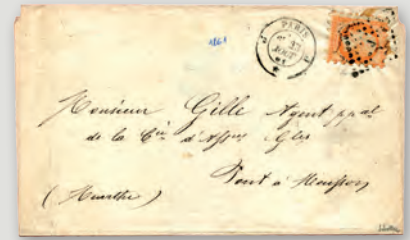 1861
PARIS
AOUT
61
Monsieur Gille Agent ppal
de la Cie d'Assces Gles
Pont à Mousson
(Meurthe)